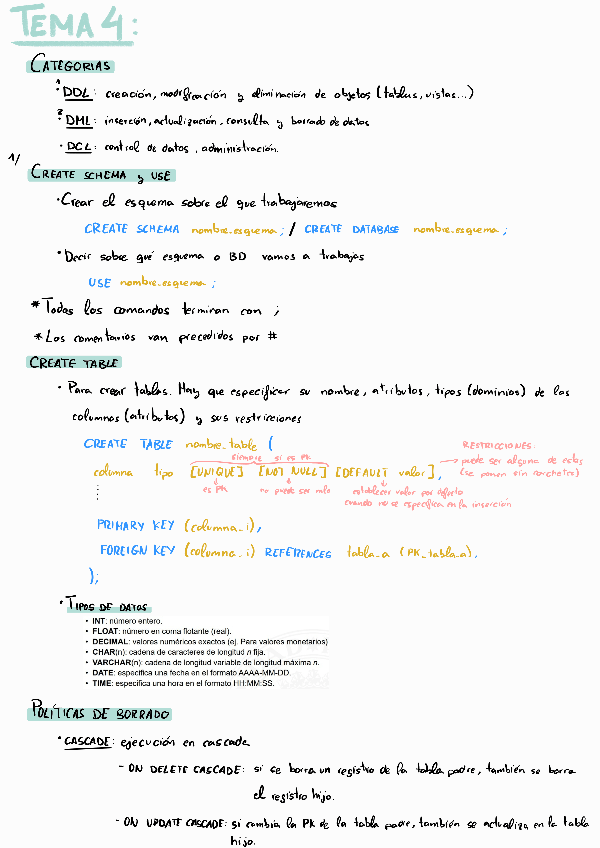 TEMA 4:
CATEGORIAS
1 · DDL: creación, modificación y eliminación de objetos (tablas, vistas...)
2 · DML: inserción, actualización, consulta y borrado de datos
· DCL: control de datos, administración.
1/
CREATE SCHEMA y USE
· Crear el esquema sobre el que trabajaremos
CREATE SCHEMA nombre_esquema; / CREATE DATABASE nombre_esquema;
· Decir sobre qué esquema o BD vamos a trabajar
USE nombre_esquema;
* Todos los comandos terminan con ;
* Los comentarios van precedidos por #
CREATE TABLE
· Para crear tablas. Hay que especificar su nombre, atributos, tipos (dominios) de las
columnas (atributos) y sus restricciones
CREATE TABLE nombre_tabla (
SIEMPRE si es PK
RESTRICCIONES:
columna tipo [UNIQUE] [NOT NULL] [DEFAULT valor],
→ puede ser alguna de estas
(se ponen sin corchetes)
es PK
no puede ser nulo
establecer valor por defecto
cuando no se especifica en la inserción
PRIMARY KEY (columna_i),
FOREIGN KEY (columna_i) REFERENCES tabla_a (PK_tabla_a),
);
· TIPOS DE DATOS
• INT: número entero.
• FLOAT: número en coma flotante (real).
• DECIMAL: valores numéricos exactos (ej. Para valores monetarios)
• CHAR(n): cadena de caracteres de longitud n fija.
• VARCHAR(n): cadena de longitud variable de longitud máxima n.
• DATE: especifica una fecha en el formato AAAA-MM-DD.
• TIME: especifica una hora en el formato HH:MM:SS.
POLÍTICAS DE BORRADO
· CASCADE: ejecución en cascada
- ON DELETE CASCADE: si se borra un registro de la tabla padre, también se borra
el registro hijo.
- ON UPDATE CASCADE: si cambia la PK de la tabla padre, también se actualiza en la tabla
hijo.